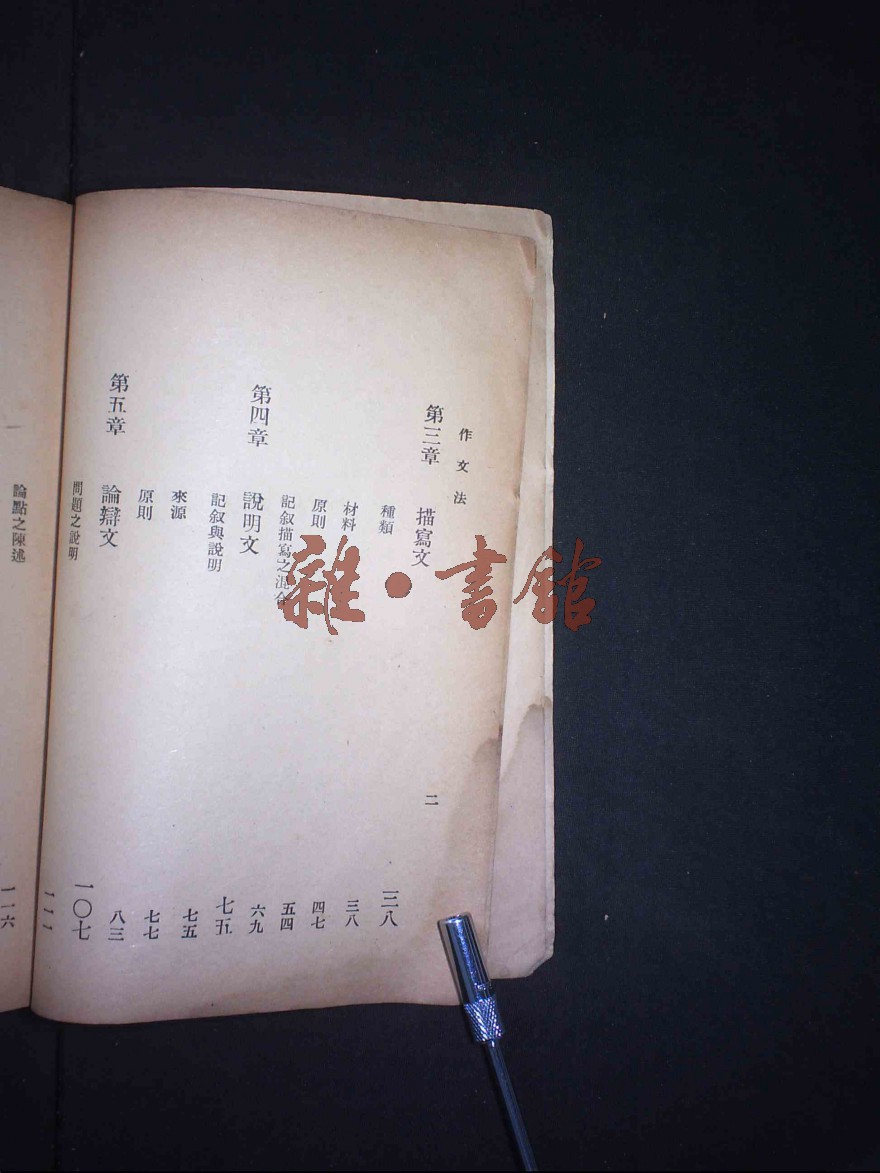 作文法 二
第三章 描寫文 三八
種類 三八
材料 四七
原則 五四
記叙描寫之混合 六九
第四章 說明文 七五
記叙與說明 七五
來源 七七
原則 八三
第五章 論辯文 一〇七
問題之說明 一一一
論點之陳述 一一六
雜·書館